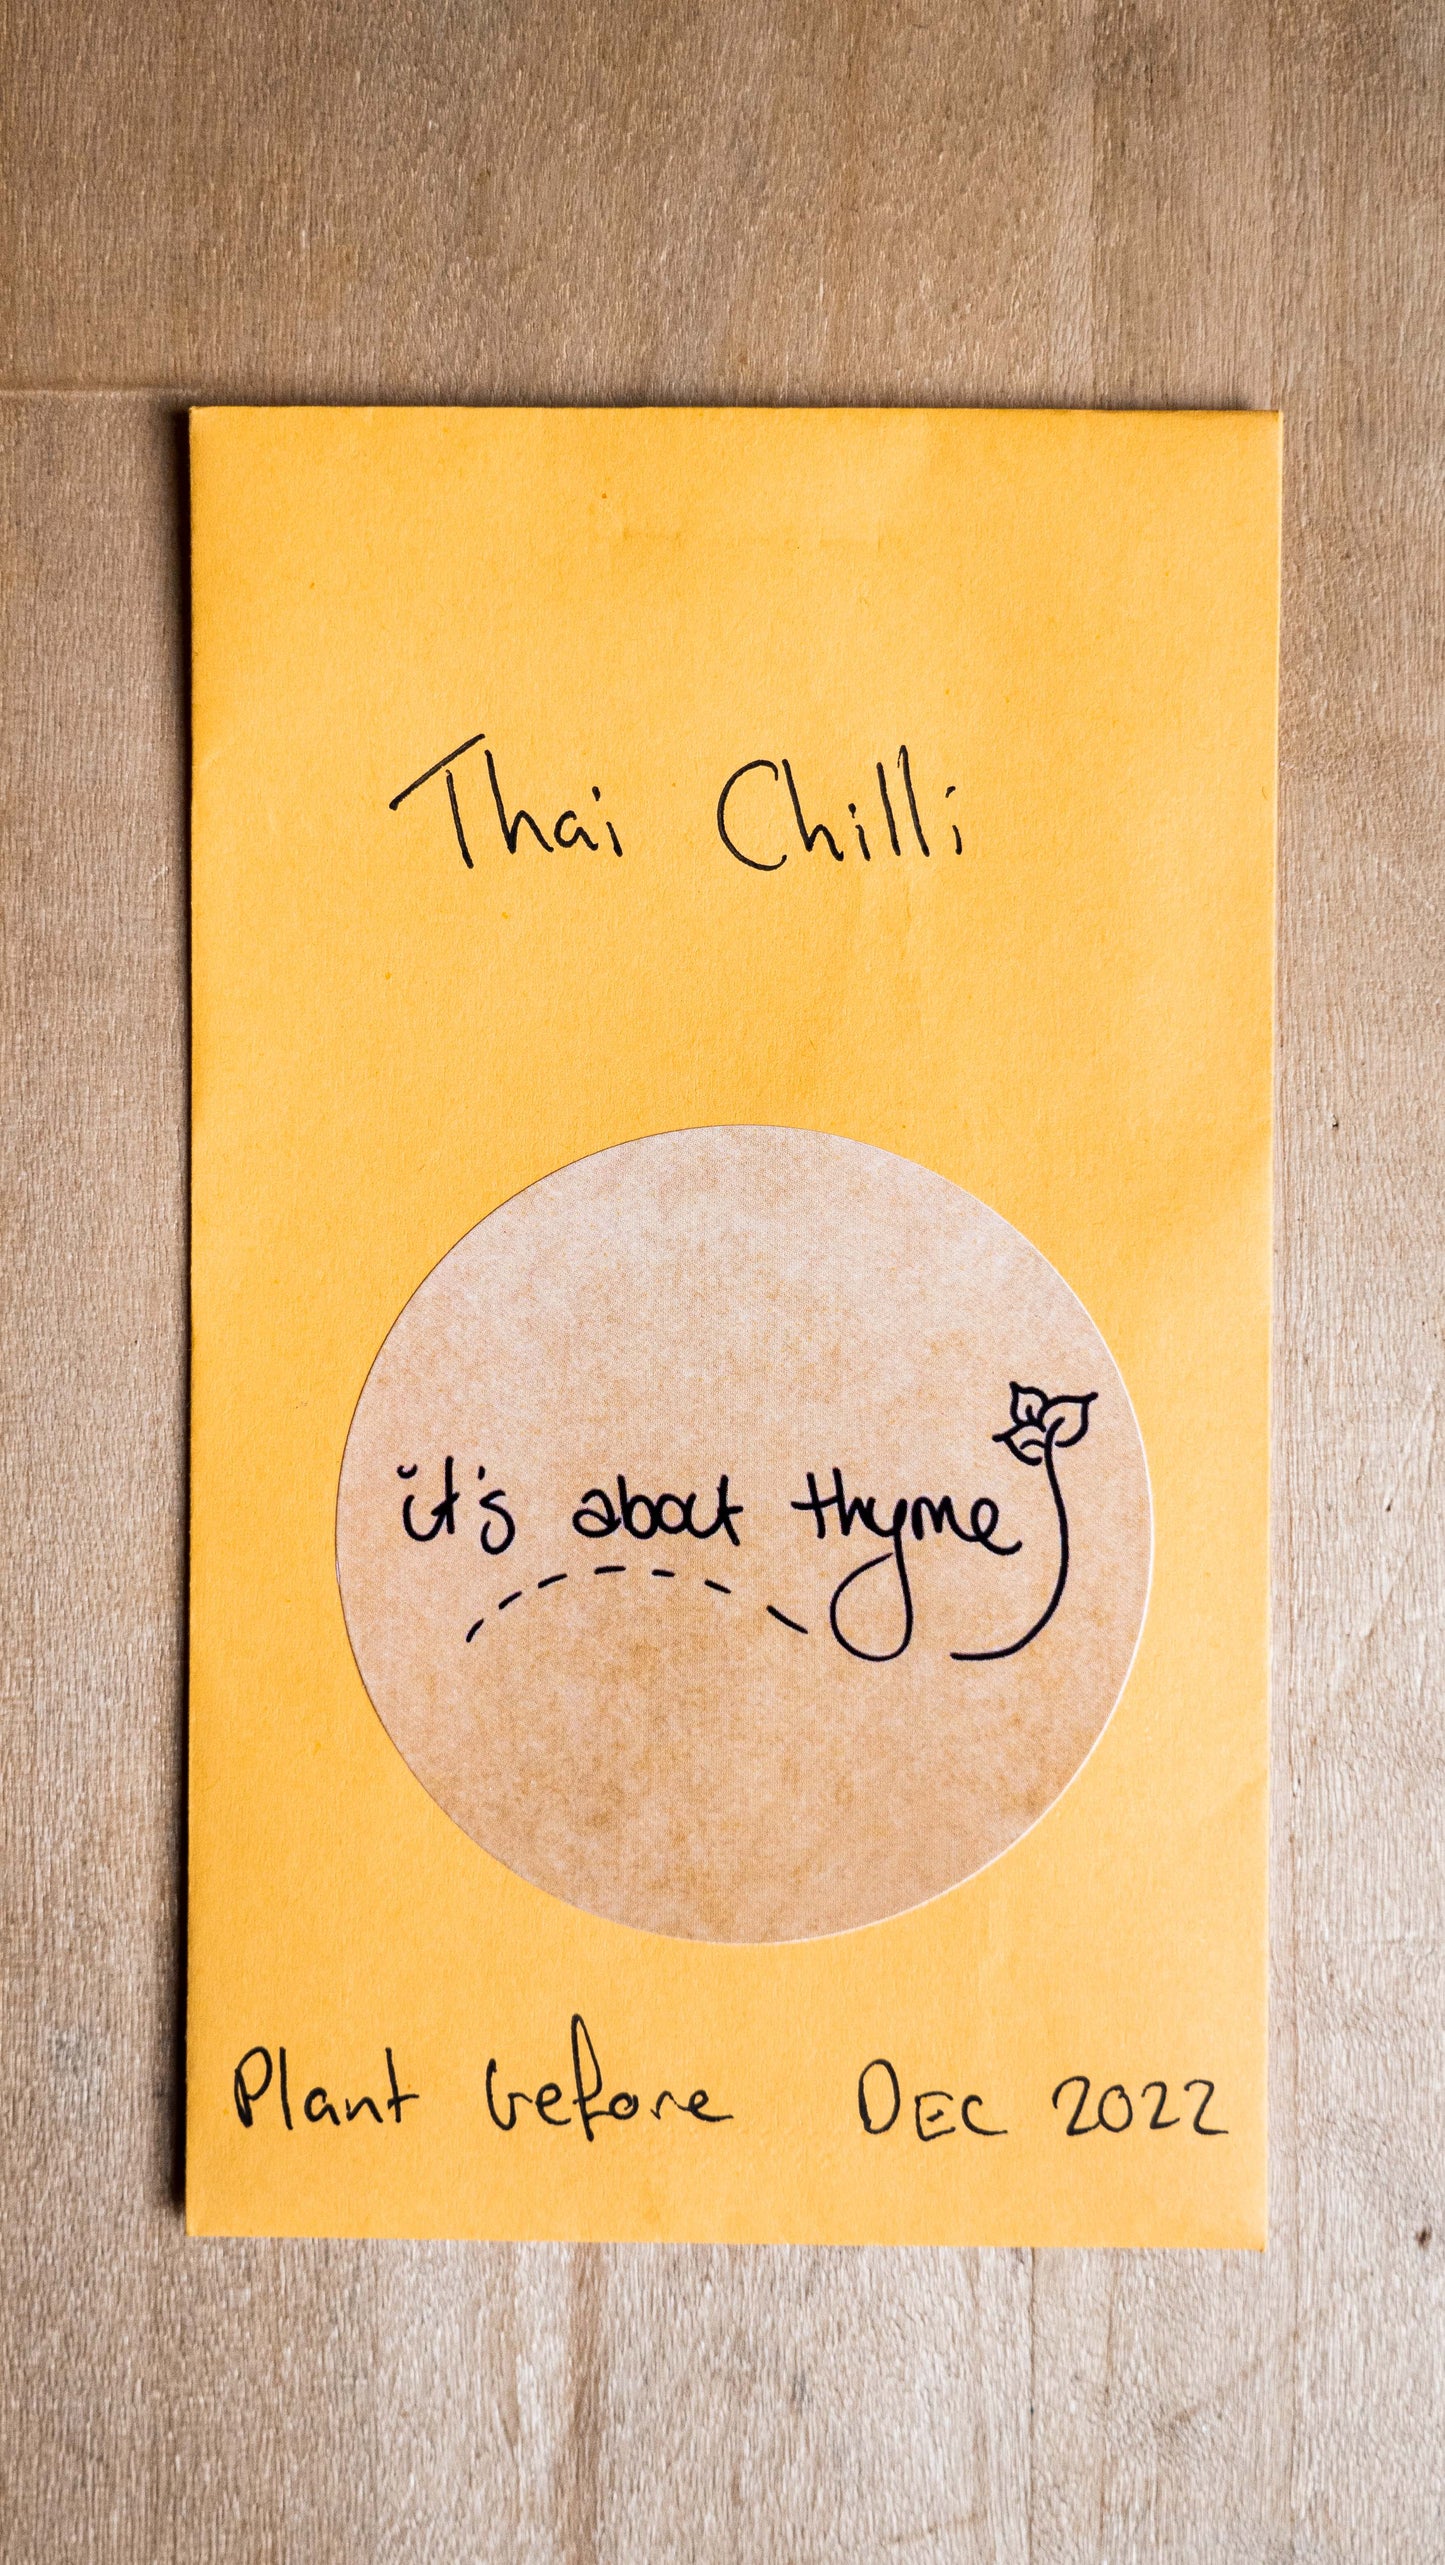 Thai Chilli
it's about thyme
Plant before DEC 2022